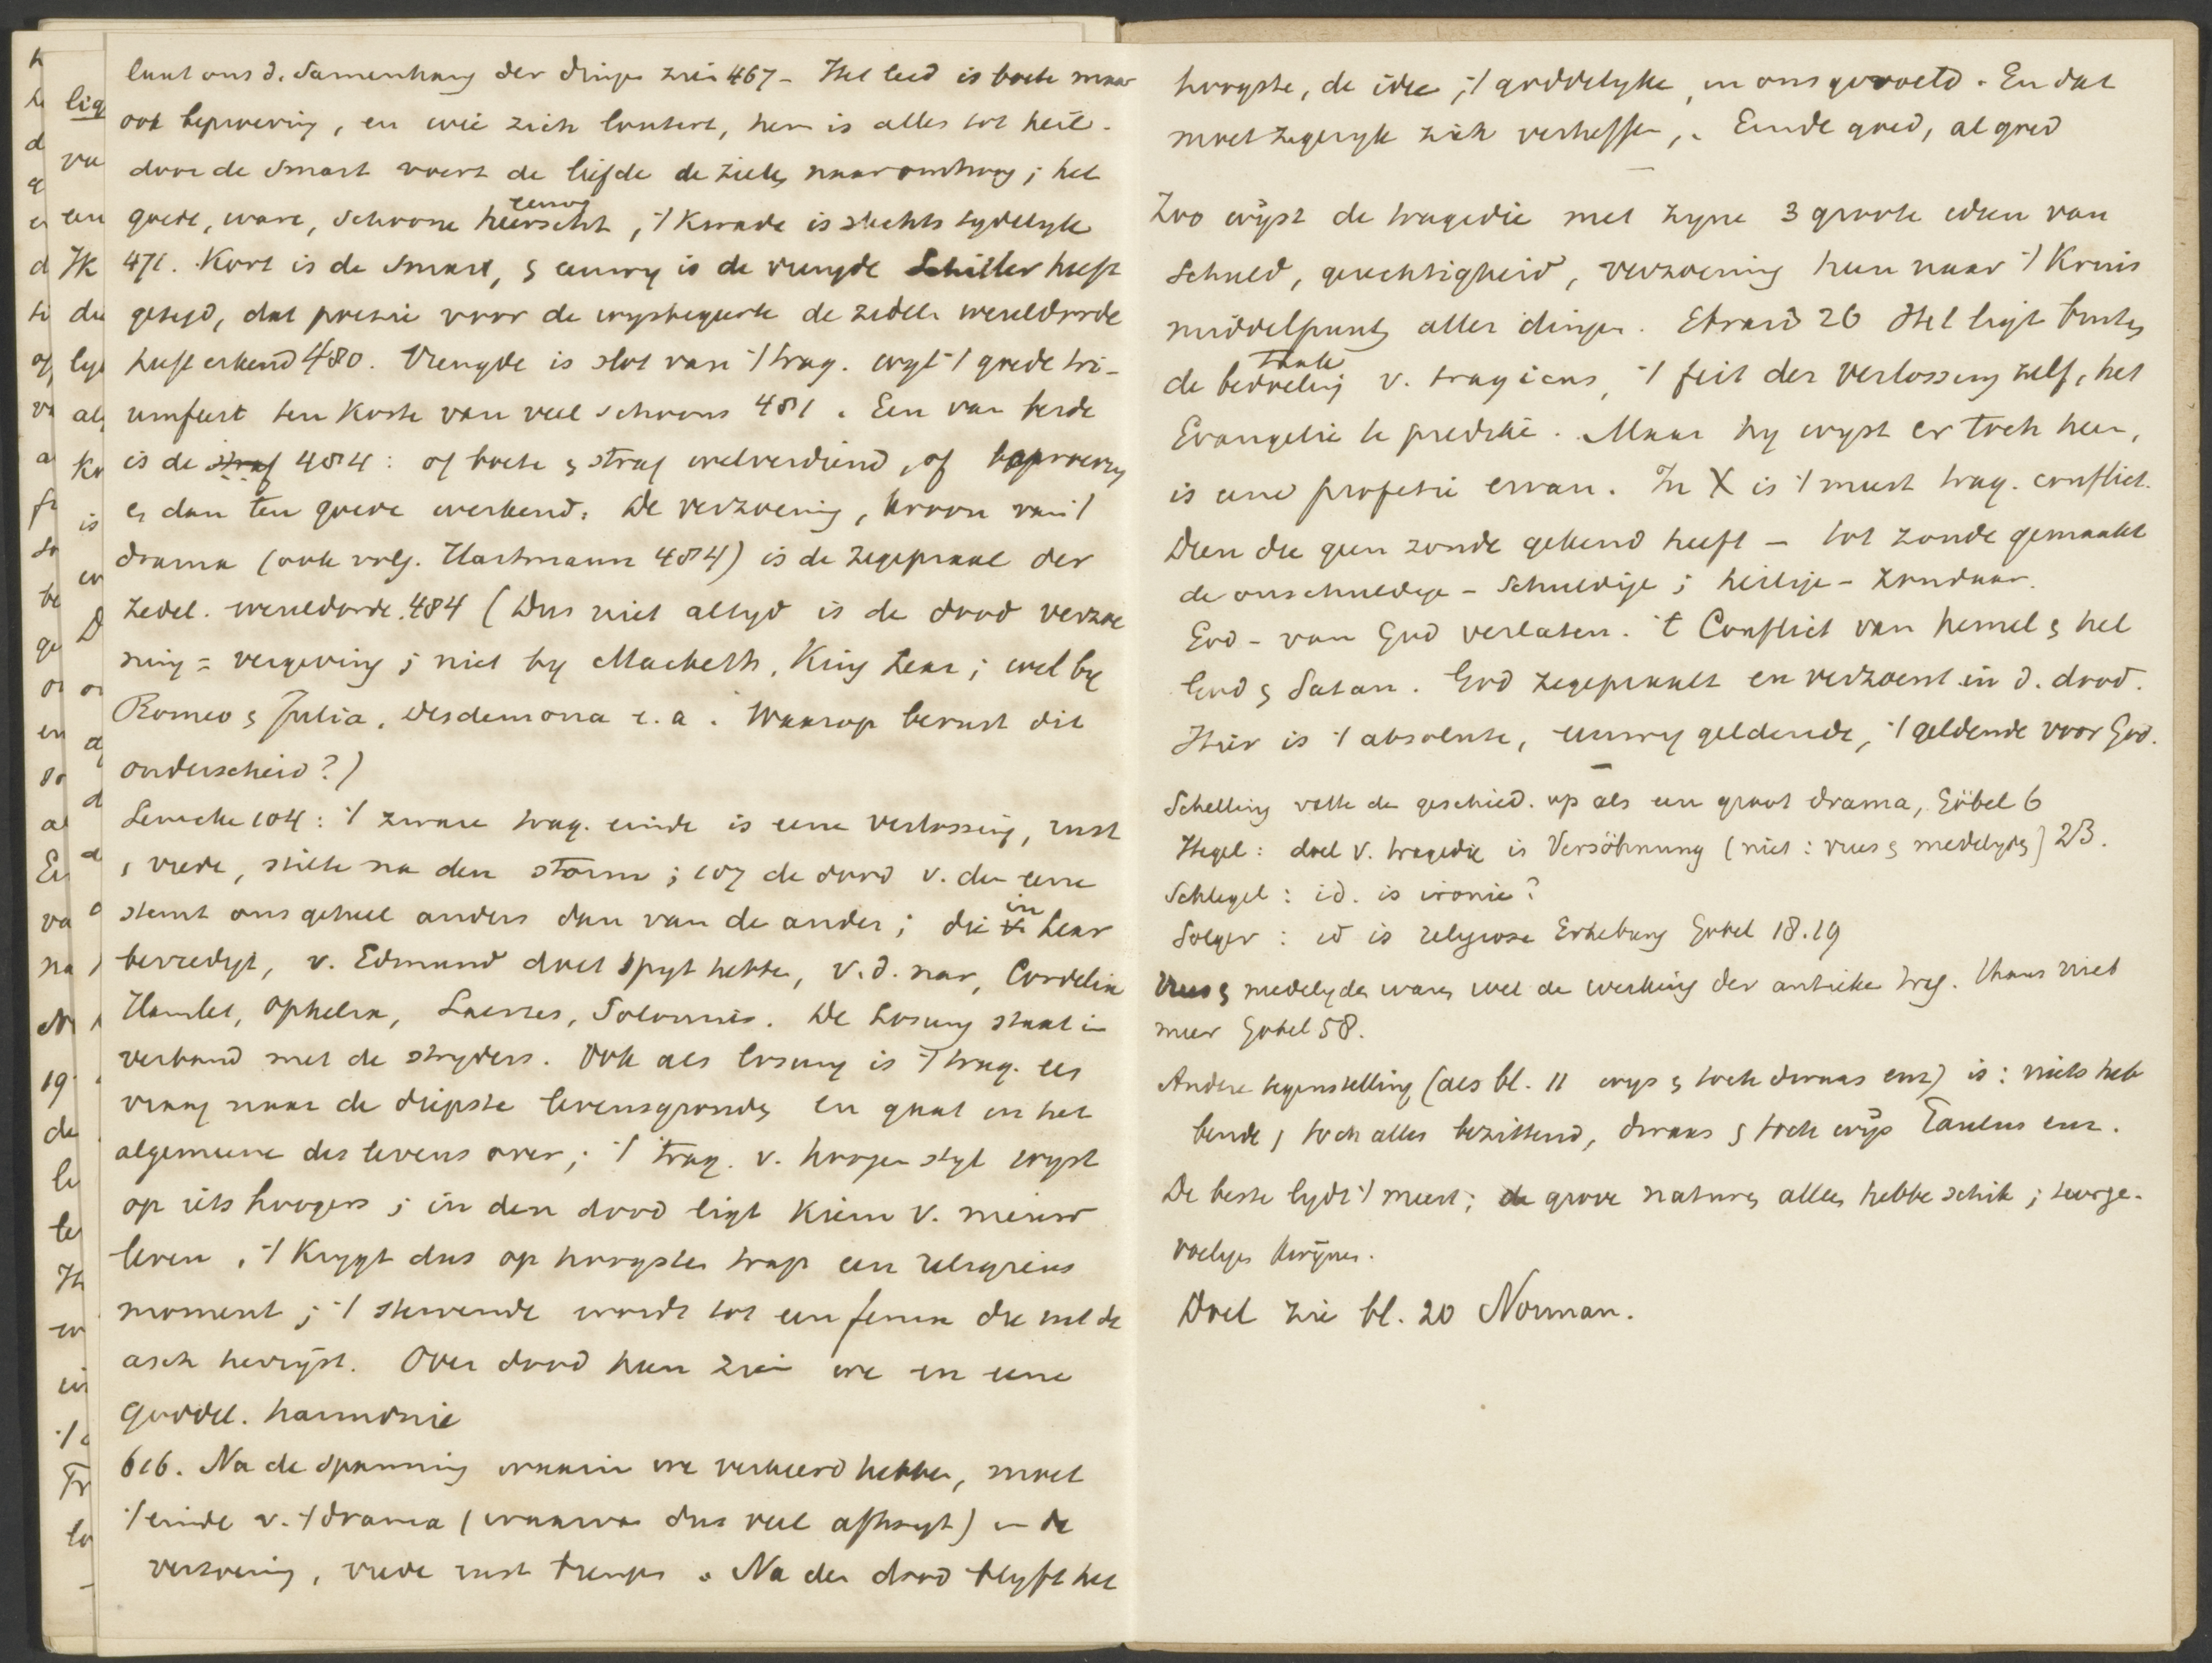 laat ons d. Samenhang der dingen zien 467 – Het leed is boete maar
ook beproeving, en wie zich loutert, hem is alles tot heil.
door de Smart voert de liefde de zielen naar omhoog; het
eeuwig
goede, ware, schoone heerscht, 't Kwade is slechts tydelyk
471. Kort is de smart, & eeuwig is de vreugde Schiller heeft
gezegd, dat poezie voor de wysbegeerte de zedel. wereldorde
heeft erkend 480. Vreugde is slot van 't trag. wyl 't goede tri-
umfeert ten koste van veel schoons 481. Een van beide
is de straf 484: of boete & straf welverdiend, of beproeving
& dan ten goede werkend. De verzoening, kroon van 't
drama (ook volg. Hartmann 484) is de zegepraal der
zedel. wereldorde. 484 (Dus niet altyd is de dood verzoe
ning = vergeving; niet by Macbeth, King Lear; wel by
Romeo & Julia, Desdemona e.a. Waarop berust dit
onderscheid?)
Lemcke 104: 't zware trag. einde is eene verlossing, rust
, vrede, stilte na den storm; 107 de dood v. den eene
in
stemt ons geheel anders dan van de ander; die v. Lear
bevredigt, v. Edmund doet spyt hebben, v.d. nar, Cordelia
Hamlet, Ophelia, Laertes, Polonius. De Losung staat in
verband met de stryders. Ook als losung is 't trag. een
vraag naar de diepste levensgronden en gaat in het
algemeene des levens over; 't trag. v. hoogen styl wyst
op iets hoogers; in den dood ligt kiem v. nieuw
leven, 't Krygt dus op hoogsten trap een religieus
moment; 't stervende wordt tot een fenix die uit de
asch herryst. Over dood heen zien we in eene
goddel. harmonie
616. Na de spanning waarin we verkeerd hebben, moet
't einde v. 't drama (waarvan dus veel afhangt) in de
verzoening, vrede rust brengen. Na den dood blyft het
hoogste, de idee, 't goddelyke, in ons gevoeld. En dat
moet zegeryk zich verheffen,. Einde goed, al goed
Zoo wyst de tragedie met zyne 3 groote ideen van
Schuld, gerechtigheid, verzoening heen naar 't Kruis
middelpunt aller dingen. Ebrard 26 Het ligt buiten
taak
de bedoeling v. tragicus, 't feit der verlossing zelf, het
Evangelie te prediken. Maar hy wyst er toch heen,
is eene profetie ervan. In X is 't meest trag. conflict.
Dien die geen zonde gekend heeft – tot zonde gemaakt
de onschuldige – Schuldige; heilige – zondaar.
God – van God verlaten. 't Conflict van hemel & hel
God & Satan. God zegepraalt en verzoent in d. dood.
Hier is 't absolute, eeuwig geldende, 't geldende voor God.
Schelling vatte de geschied. op als een groot drama, Göbel 6
Hegel: doel v. tragedie is Versöhnung (niet: vrees & medelyden) 23.
Schlegel: id. is ironie?
Solger: id is religiose Erhebung Gobel 18.19
Vrees & medelyden waren wel de werking der antieke trag. thans niet
meer Gobel 58.
Andere tegenstelling (als bl. 11 wys & toch dwaas enz) is: niets heb
bende, toch alles bezittend, dwaas & toch wys Paulus enz.
De beste lydt 't meest; de grove naturen alleen hebben schik; teerge-
voeligen kwynen.
Doel zie bl. 20 Norman.